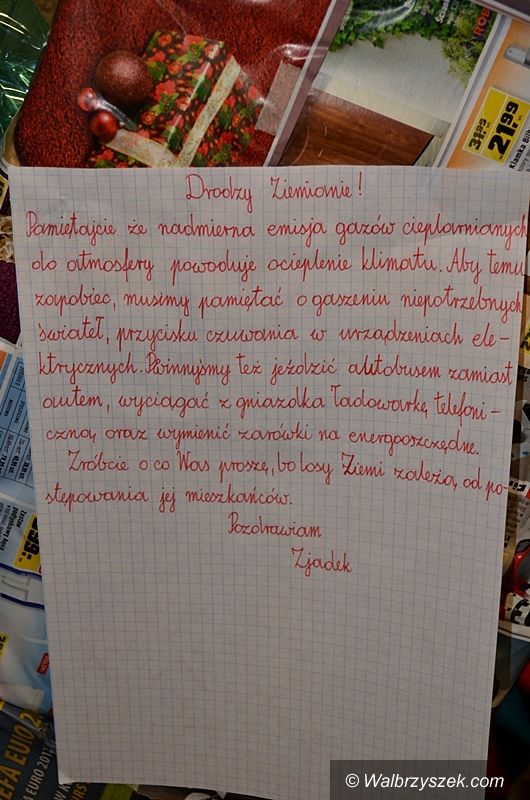 ROB
31.99
21.99
Klamka B
Drodzy Ziemianie!
Pamiętajcie że nadmierna emisja gazów cieplarnianych
do atmosfery powoduje ocieplenie klimatu. Aby temu
zapobiec, musimy pamiętać o gaszeniu niepotrzebnych
świateł, przycisku czuwania w urządzeniach ele-
ktrycznych. Powinnyśmy też jeździć autobusem zamiast
autem, wyciągać z gniazdka ładowarkę telefoni-
czną, oraz wymienić żarówki na energooszczędne.
Zróbcie o co Was proszę, bo losy Ziemi zależą od po-
stępowania jej mieszkańców.
Pozdrawiam
Zjadek
EFA EURO 2012
© Walbrzyszek.com